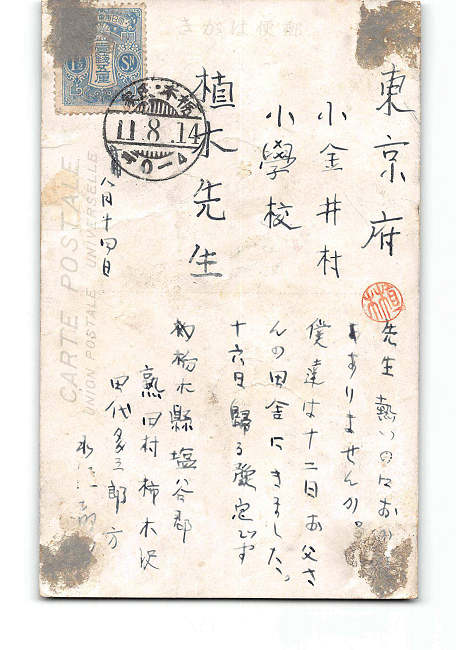 きがは便郵
東京府
小金井村
小學校
植木先生
植
先生 熱いのにおか
ありませんか。
僕達は十二日お父さ
んの田舎にきました。
十六日歸る豫定です
栃木縣塩谷郡
熟田村柿木沢
田代多三郎方
八月十四日
11.8.14
CARTE POSTALE
UNION POSTALE UNIVERSELLE